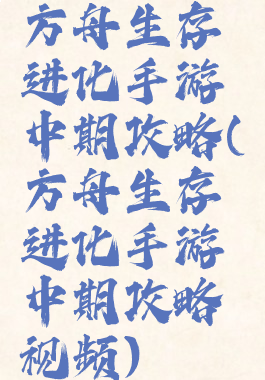 方舟生存
进化手游
中期攻略(
方舟生存
进化手游
中期攻略
视频)